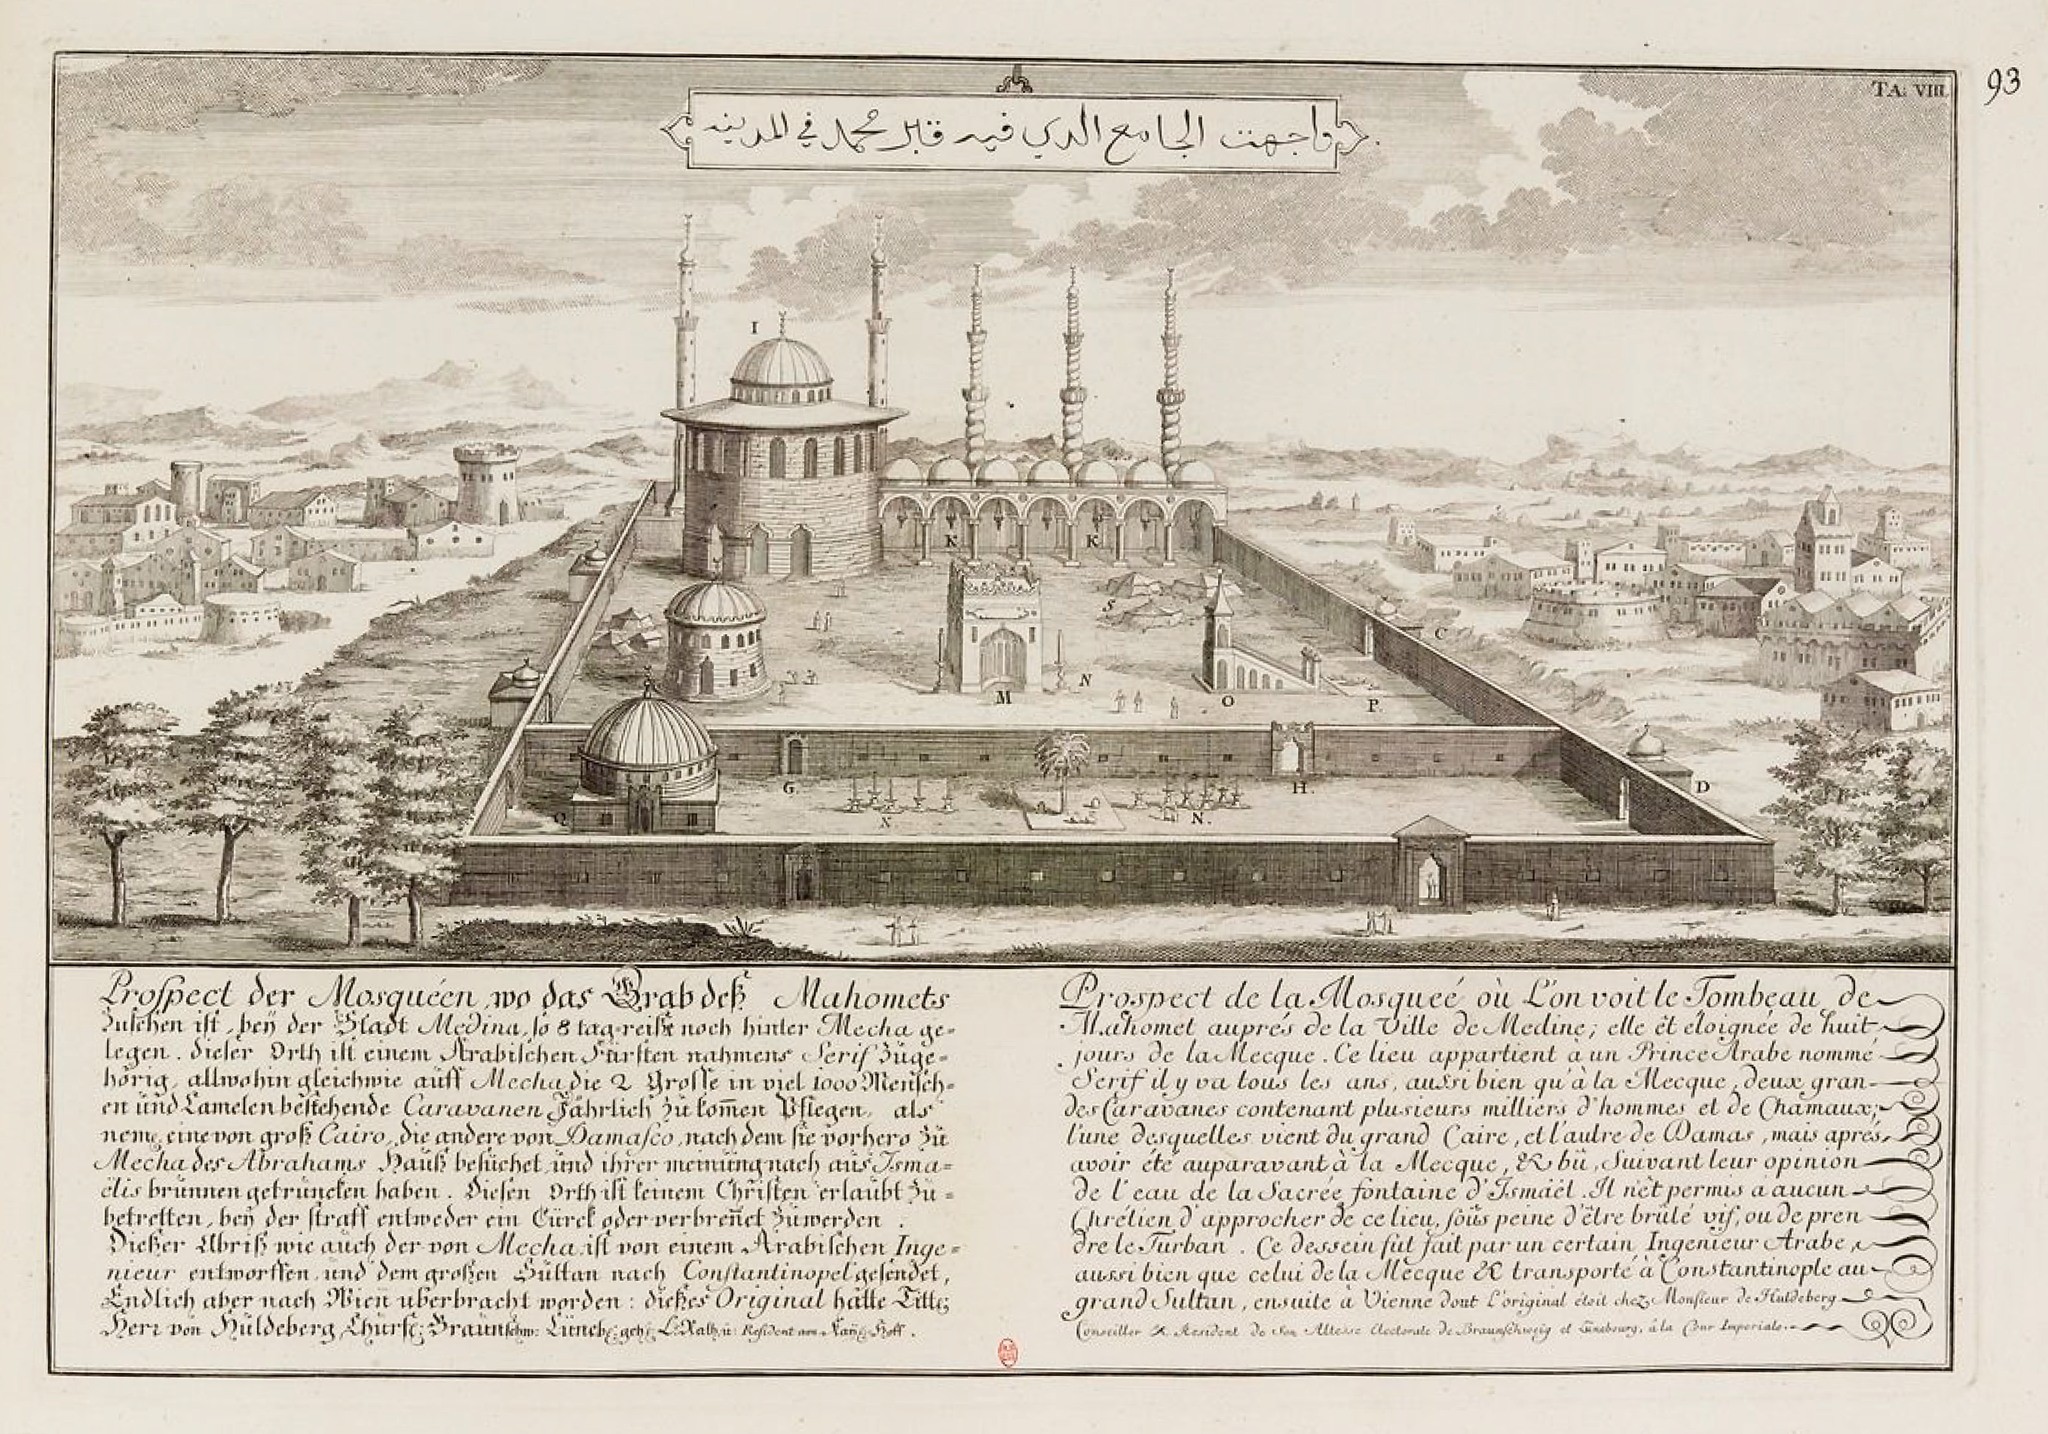 TA: VIII.
93
واجهت الجامع الدي فيه قبر محمد في المدينه
I
K
K
S
C
M
N
O
P.
G
H.
D
Q
N.
N.
Prospect der Mosquéen, wo das Grab deß Mahomets
Zusehen ist, beÿ der Stadt Medina, so 8 tag-reiße noch hinter Mecha ge=
legen. dieser Orth ist einem Arabischen Fürsten nahmens Serif Züge=
hörig, allwohin gleichwie auff Mecha die 2 Grosse in viel 1000 Mensch=
en und Camelen bestehende Caravanen Jährlich Zu kom̄en Pflegen, als
neml: eine von groß Cairo, die andere von Damasco, nach dem sie vorhero Zü
Mecha des Abrahams Hauß besüchet, und ihrer meinüng nach aüs Isma=
ëlis brünnen getrüncken haben. Diesen Orth ist keinem Christen erlaübt Zü=
betretten, beÿ der straff entweder ein Türck oder verbren̄et Züwerden.
Dießer Abriß wie aüch der von Mecha, ist von einem Arabischen Inge=
nieur entworffen, und dem großen Sültan nach Constantinopel gesendet,
Endlich aber nach Wien̄ uberbracht worden: dießes Original hatte Titt:
Herr von Hüldeberg Chürf: Braünschw: Lüneb: geh: L: Rath, ü: Resident am Kaÿ: Hoff.
Prospect de la Mosqueé où L'on voit le Tombeau de
Mahomet auprés de la Ville de Medine; elle êt eloignée de huit
jours de la Mecque. Ce lieu appartient à un Prince Arabe nommé
Serif il y va tous les ans, aussi bien qu'à la Mecque, deux gran-
des Caravanes contenant plusieurs milliers d'hommes et de Chamaux;
l'une desquelles vient du grand Caire, et l'autre de Damas, mais aprés
avoir été auparavant à la Mecque, & bü, Suivant leur opinion
de l'eau de la Sacrée fontaine d'Ismäel. Il n'êt permis a aucun
Chrétien d'approcher de ce lieu, soûs peine d'être brûlé vif, ou de pren
dre le Turban. Ce dessein fut fait par un certain Ingenieur Arabe,
aussi bien que celui de la Mecque & transporté à Constantinople au
grand Sultan, ensuite à Vienne dont L'original étoit chez Monsieur de Huldeberg
Conseiller & Resident de Son Altesse Electorale de Braunschweig et Lünebourg, à la Cour Imperiale.